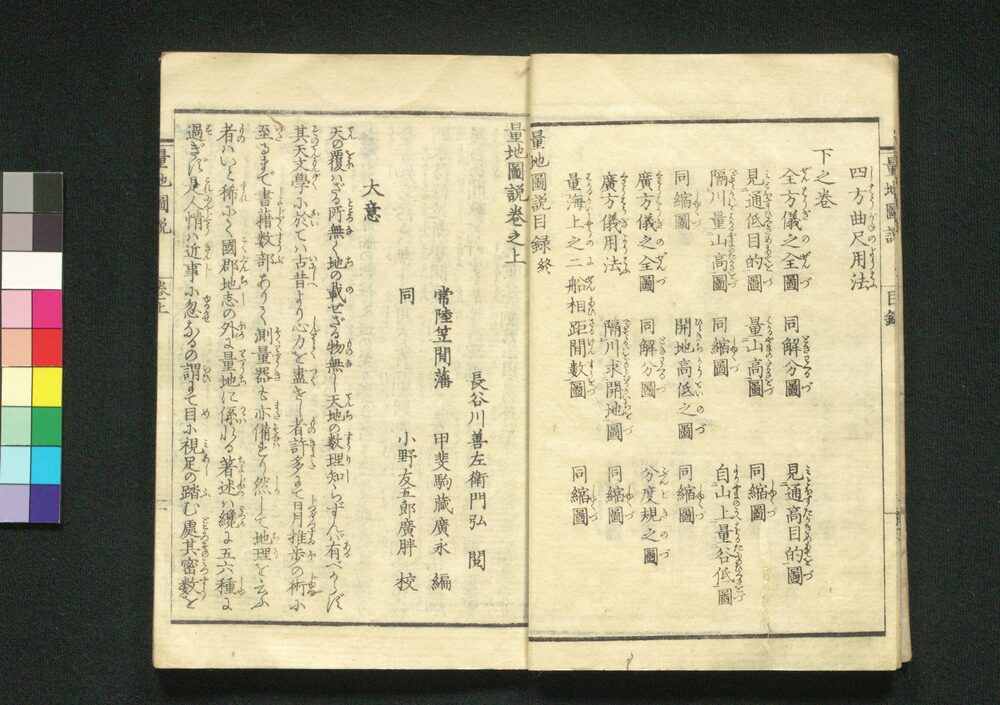 四方曲尺用法
下之卷
全方儀之全圖 同解分圖 見通高目的圖
見通低目的圖 量山高圖 同縮圖
隔川量山高圖 同縮圖 自山上量谷低圖
同縮圖 開地高低之圖 同縮圖
廣方儀之全圖 同解分圖 分度規之圖
廣方儀用法 隔川求開地圖 同縮圖
量海上之二船相距間數圖 同縮圖
量地圖説目録終
量地圖説卷之上
長谷川善左衛門弘 閲
常陸笠間藩 甲斐駒藏廣永 編
同 小野友五郎廣胖 校
大意
天の覆はざる所無く地の載せざる物無し天地の数理知らずんバ有べからず
其天文學に於てハ古昔より心力を盡せし者許多にて日月推歩の術に
至るまで書籍数部ありて測量器も亦備まり然して地理を云ふ
者ハいと稀にて國郡地志の外に量地に係れる著述ハ纔に五六種に
過ぎず是人情ハ近事に忽なるの謂にて目に視足の踏む處其密数を
量地圖説 卷上